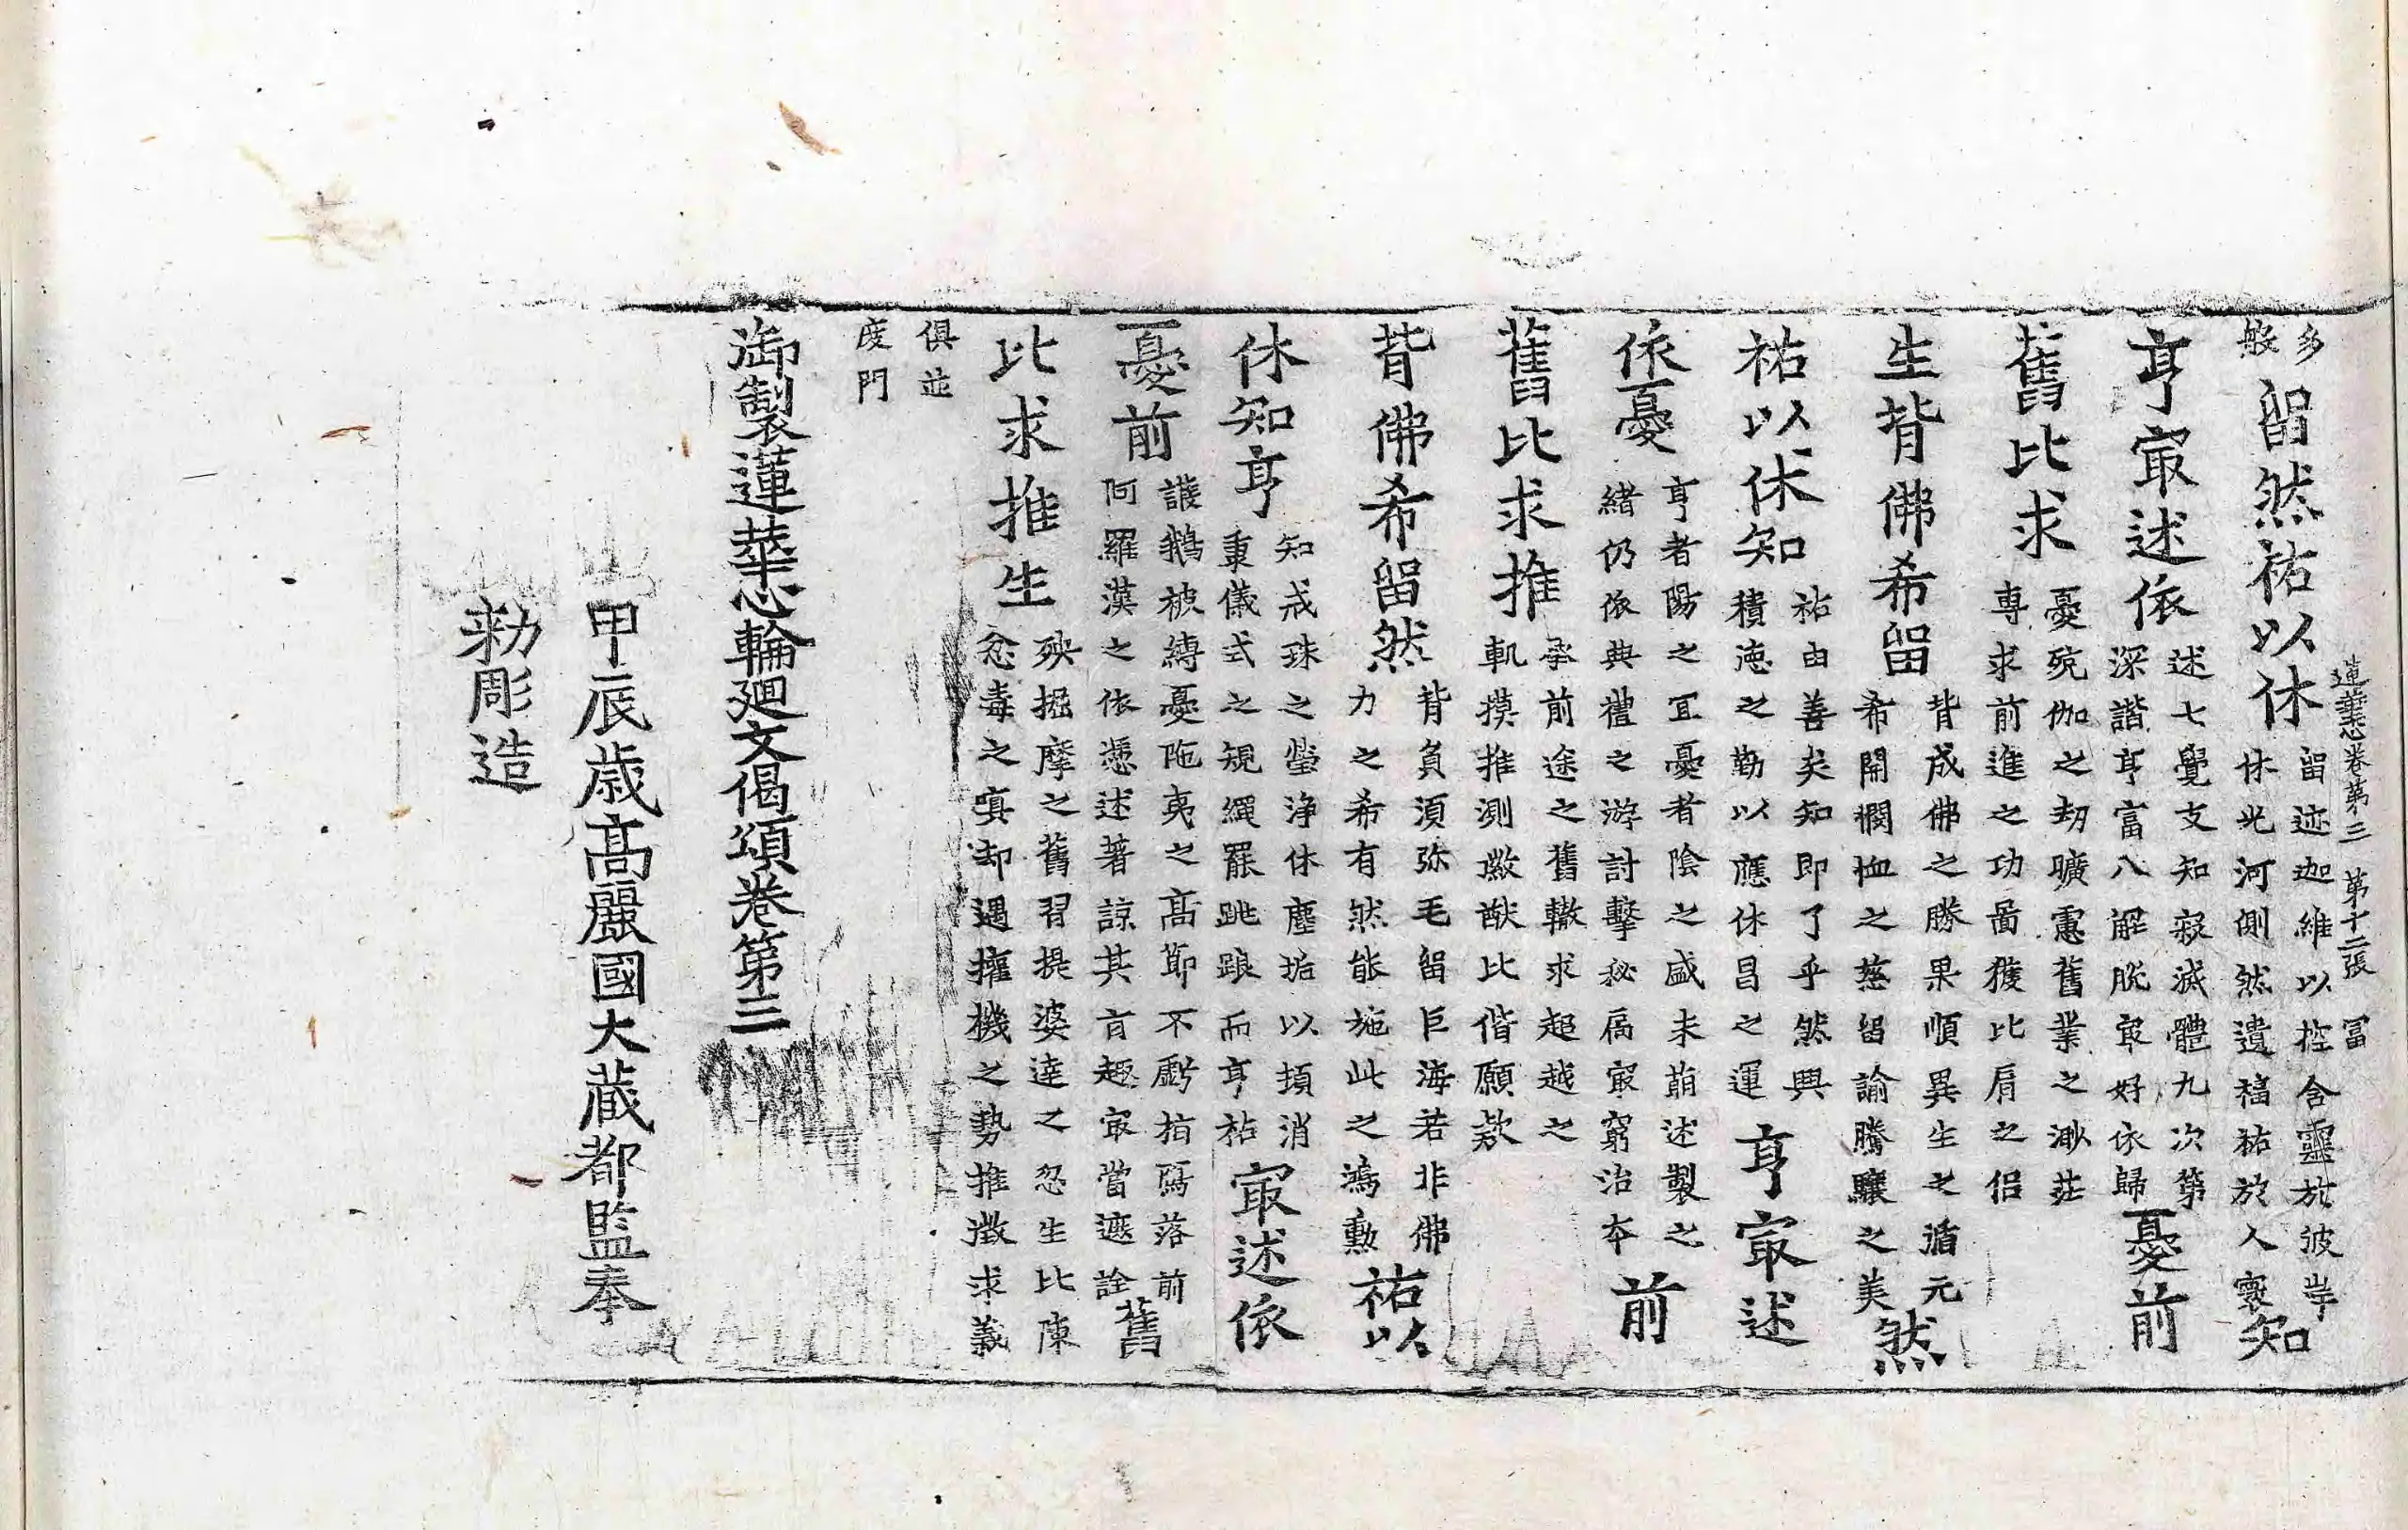 蓮華心卷第三 第十二張 冨
多般留然祐以休留迹迦維以控含靈於彼岸休光河側然遺福祐於人寰知
亨㝡述依述七覺支知寂滅體九次第深諧亨富八解脫㝡好依歸憂前
舊比求憂殑伽之劫曠憲舊業之渺茫専求前進之功啚獲比肩之侣
生背佛希留背成佛之勝果順異生之循元希開櫩恤之慈留諭騰驤之美然
祐以休知祐由善矣知即了乎然興積德之勤以應休昌之運亨㝡述
依憂亨者陽之冝憂者陰之盛未萠述製之緒仍依典禮之游討擊秘扃㝡窮治夲前
舊比求推承前途之舊轍求超越之軌摸推測猷比偕願欵
背佛希留然背負須弥毛留巨海若非佛力之希有然能施此之鴻勳祐以
休知亨知戒珠之瑩浄休塵垢以消秉儀式之規繩罷跳踉而亨祐㝡述依
憂前護鵝被縛憂陁夷之髙莭不虧指落前阿羅漢之依憑述著諒其言趣㝡當遮詮舊
比求推生殃掘摩之舊習提婆達之忽生比陳忿毒之嗔却遇摧機之勢推徵求義
俱並度門
御製蓮華心輪廻文偈頌卷第三
甲辰歲髙麗國大藏都監奉
勑彫造